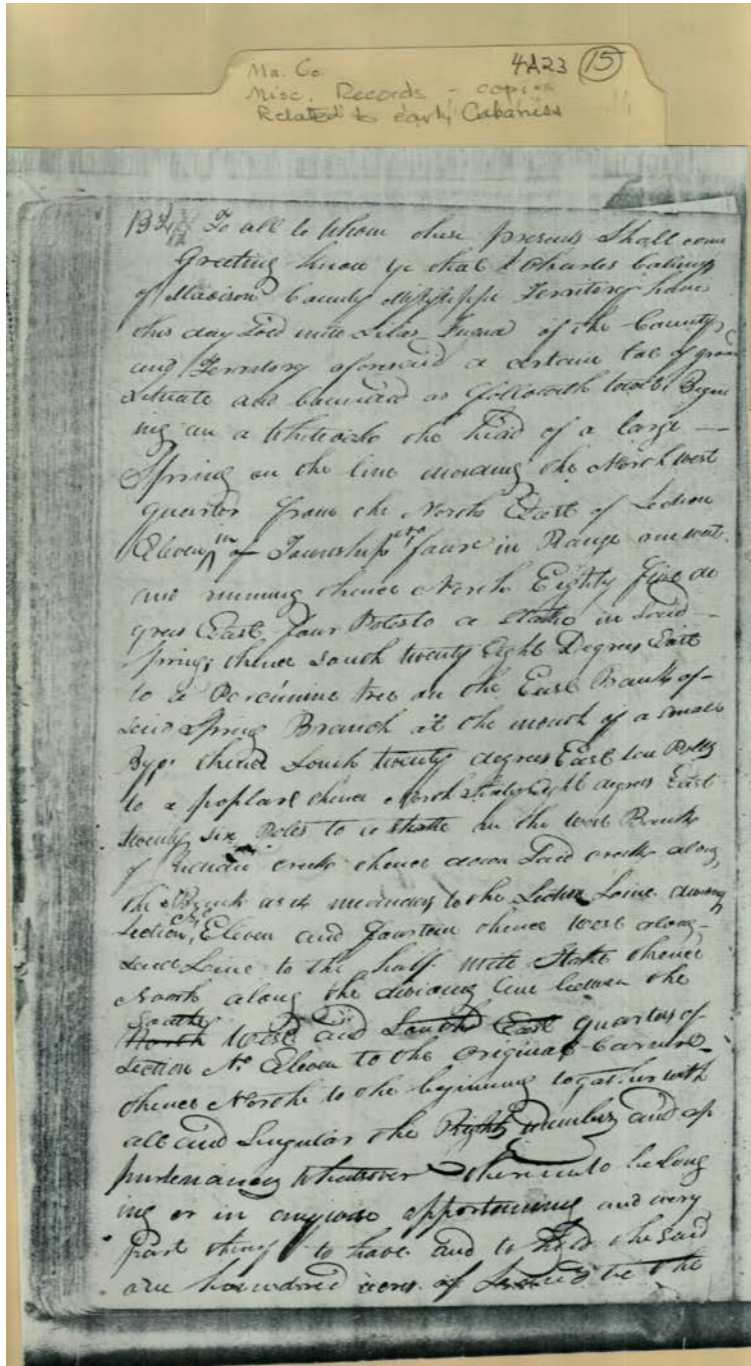 Ma. Co. 4A23 15
Misc. Records - copies
Related to early Cabaniss
To all to whom these presents Shall come
Greeting know ye that I Charles
of Madison County Missisippi Territory have
this day Sold unto Silas Fuqua of the County
and Territory aforesaid a certain tract of
Situate and bounded as followeth
ing on a Whiteoak the head of a large
Spring on the line dividing the North west
quarter from the North East of Section
Eleven in Township in Range one west
and running thence North Eighty five de
grees East four Poles to a Stake in said
Spring thence South twenty Eight Degrees East
to a tree on the East Bank of
said Spring Branch at the mouth of a small
thence South twenty degrees East ten Poles
to a poplar thence North Sixty Eight degrees East
twenty six Poles to a Stake on the west Bank
of Indian creek thence down Said creek along
the Bank as it meanders to the Section Line
Section Eleven and fourteen thence west along
said Line to the half mile Stake thence
North along the dividing line between the
South
North West and South East quarters of
Section No Eleven to the original
thence North to the beginning together with
all and Singular the Rights and ap
purtenances whatsoever thereunto belong
ing or in anywise appertaining and every
part thereof to have and to Hold the said
one hundred acres of Land be the